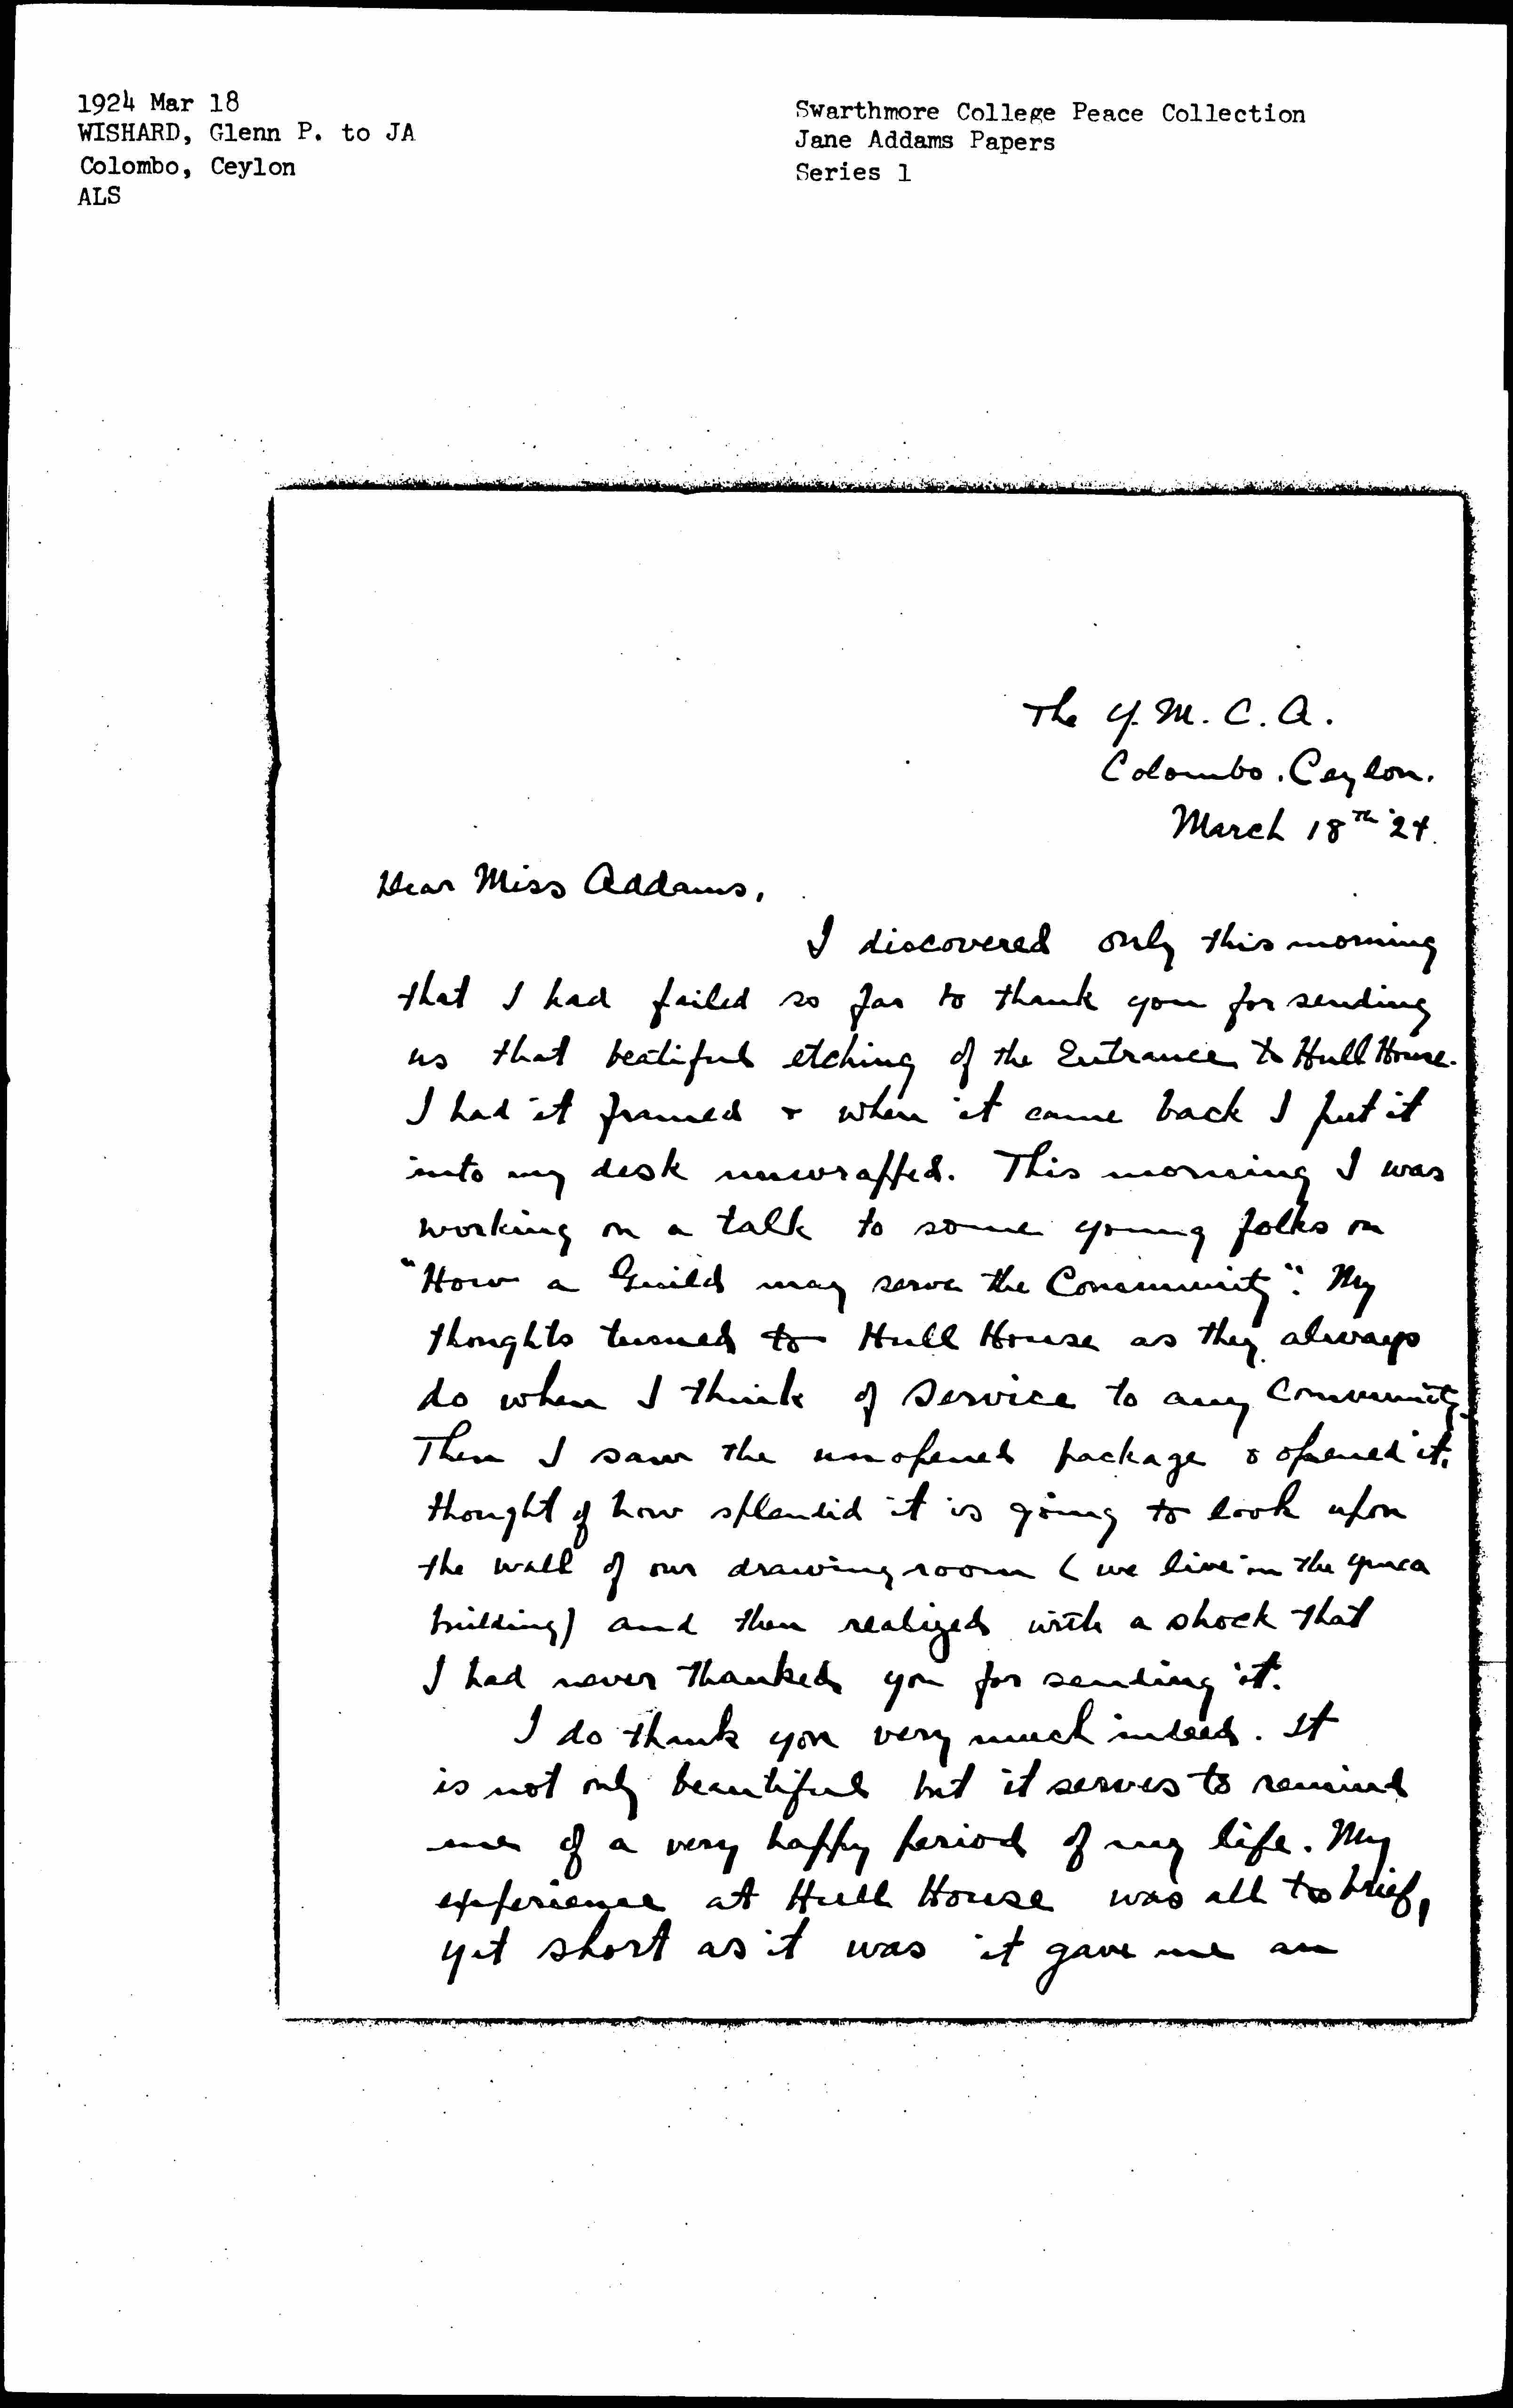 1924 Mar 18
WISHARD, Glenn P. to JA
Colombo, Ceylon
ALS
Swarthmore College Peace Collection
Jane Addams Papers
Series 1
The Y.M.C.A.
Colombo. Ceylon.
March 18th '24.
Dear Miss Addams,
I discovered only this morning
that I had failed so far to thank you for sending
us that beatiful etching of the Entrance to Hull House.
I had it framed & when it came back I put it
into my desk unwrapped. This morning I was
working on a talk to some young folks on
"How a Guild may serve the Community". My
thoughts turned to Hull House as they always
do when I think of Service to any Community.
Then I saw the unopened package & opened it.
thought of how splendid it is going to look upon
the wall of our drawing room (we live in the ymca
building) and then realized with a shock that
I had never thanked you for sending it.
I do thank you very much indeed. It
is not only beautiful but it serves to remind
me of a very happy period of my life. My
experience at Hull House was all too brief,
yet short as it was it gave me an